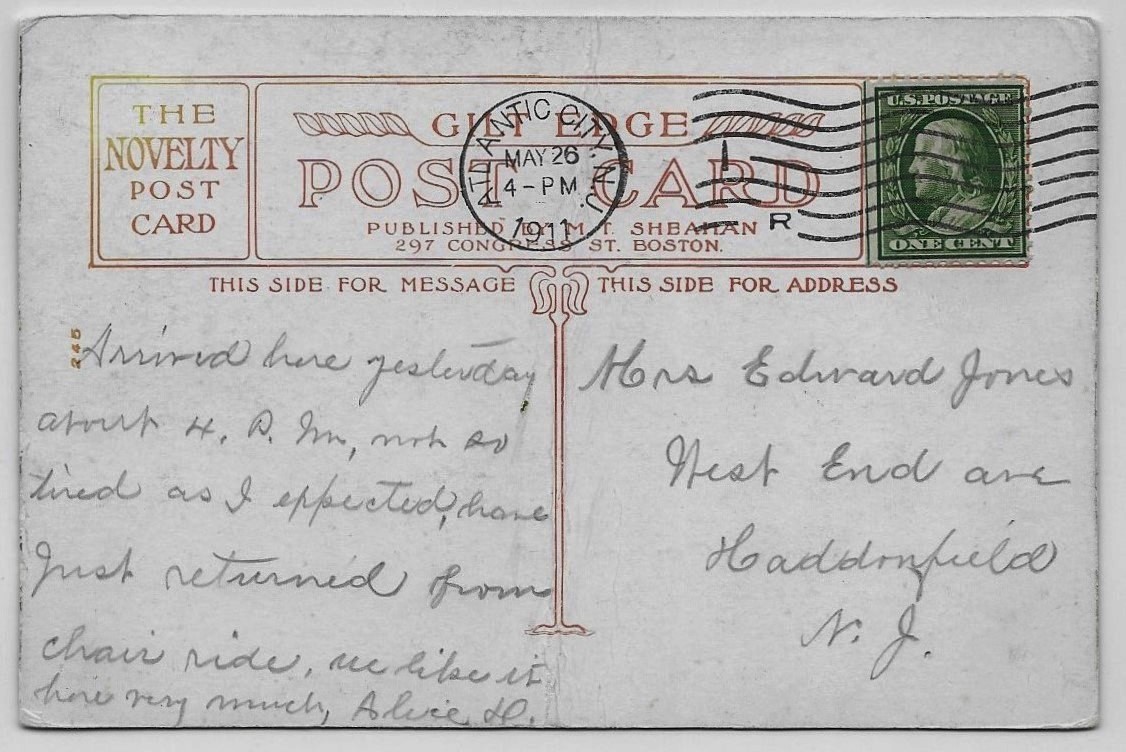 THE
NOVELTY
POST
CARD
GILT EDGE
POST CARD
PUBLISHED BY M. T. SHEAHAN
297 CONGRESS ST. BOSTON.
ATLANTIC CITY, N.J.
MAY 26
4-PM
1911
1
R
U.S. POSTAGE
ONE CENT
THIS SIDE FOR MESSAGE
THIS SIDE FOR ADDRESS
245
Arrived here yesterday
about 4. P. M., not so
tired as I expected, have
Just returned from
chair ride, we like it
here very much, Alice H.
Mrs Edward Jones
West End ave
Haddonfield
N. J.